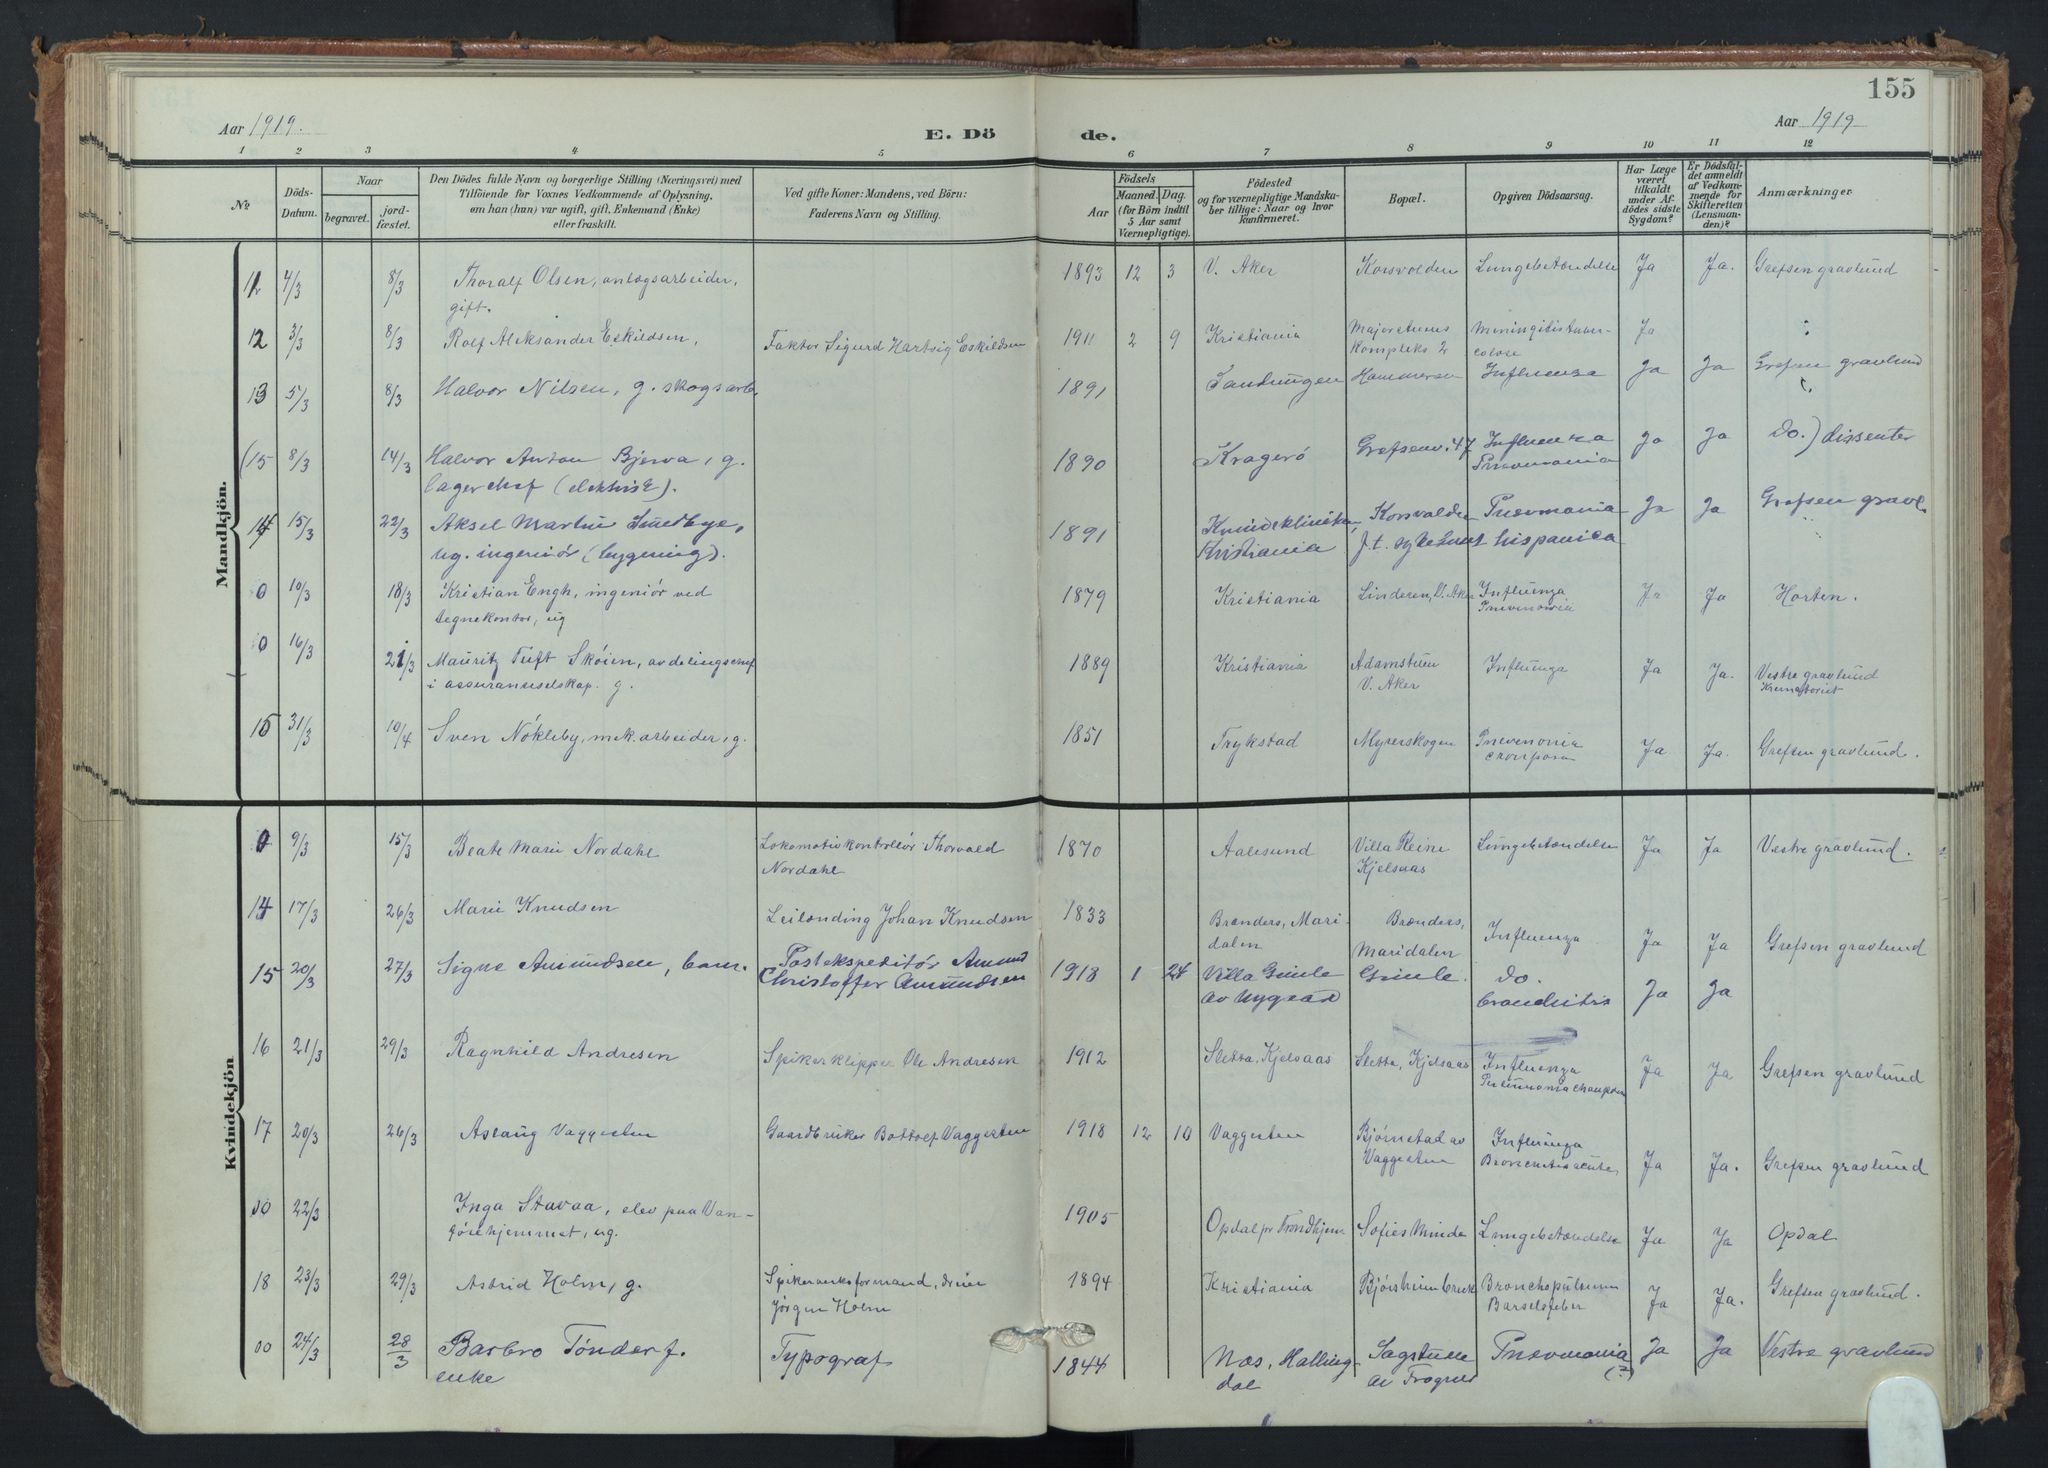 155
Aar 1919.
E. Dö de.
Aar 1919
1 2 3 4 5 6 7 8 9 10 11 12
№
Döds-
Datum.
Naar
begravet.
jord-
fæstet.
Den Dödes fulde Navn og borgerlige Stilling (Næringsvei) med
Tilföiende for Voxnes Vedkommende af Oplysning,
om han (hun) var ugift, gift, Enkemand (Enke)
eller fraskilt.
Ved gifte Koner: Mandens, ved Börn:
Faderens Navn og Stilling.
Födsels
Aar
Maaned. Dag.
(for Börn indtil
5 Aar samt
Værnepligtige).
Födested
og for værnepligtige Mandska-
ber tillige: Naar og hvor
konfirmeret.
Bopæl.
Opgiven Dödsaarsag.
Har Læge
været
tilkaldt
under Af-
dödes sidste
Sygdom?
Er Dödsfal-
det anmeldt
af Vedkom-
mende for
Skifteretten
(Lensman-
den)?
Anmærkninger
Mandkjön.
11 4/3 8/3 Thoralf Olsen, anlægsarbeider, 1893 12 3 V. Aker Korsvolden Lungebetændelse Ja Ja. Grefsen gravlund
gift.
12 3/3 8/3 Rolf Aleksander Eskildsen, Faktor Sigurd Hartvig Eskildsen 1911 2 9 Kristiania Majorstuens Meningitis tuber- Ja
kompleks 2 culose
13 5/3 8/3 Halvor Nilsen, g. skogsarb. 1891 Sandungen Hammeren Influenza Ja Ja Grefsen gravlund
(15 8/3 14/3 Halvor Anton Bjerva, g. 1890 Kragerö Grefsenv. 47 Influenza Ja Ja Do.) dissenter
lagerchef (elektrisk). Pneumonia
14 15/3 22/3 Aksel Martin Smedbye, 1891 Kvindeklinikken, Korsvolden Pneumonia Ja Ja Grefsen gravl.
ug. ingeniör (bygning). Kristiania f.t. sykehus hispanica
0 10/3 18/3 Kristian Engh, ingeniör ved 1879 Kristiania Linderen, V. Aker Influenza Ja Ja Horten.
tegnekontor, ug Pnevmonia
0 16/3 21/3 Mauritz Tuft Skøien, avdelingschef 1889 Kristiania Adamstuen Influenza Ja Ja. Vestre gravlund
i assuranseselskap. g. V. Aker Krematoriet
15 31/3 10/4 Sven Nökleby, mek. arbeider, g. 1851 Trykstad Myrerskogen Pnevmonia Ja Ja. Grefsen gravlund.
crouposa
Kvindekjön
0 9/3 15/3 Beate Marie Nordahl Lokomotivkontrollör Thorvald 1870 Aalesund Villa Reine Lungebetændelse Ja Ja Vestre gravlund.
Nordahl Kjelsaas
14 17/3 26/3 Marie Knudsen Leilending Johan Knudsen 1833 Brenders, Mari- Brænders, Influenza Ja Ja Grefsen gravlund
dalen Maridalen
15 20/3 27/3 Signe Amundsen, barn. Postekspeditör Amund 1918 1 24 Villa Gimle Gimle. Do. Ja Ja
Christoffer Amundsen av Nygaard bronchitis
16 21/3 29/3 Ragnhild Andresen Spikerklipper Ole Andresen 1912 Sletta, Kjelsaas Sletta, Kjelsaas Influenza Ja Ja Grefsen gravlund
Pneumonia crouposa
17 20/3 26/3 Aslaug Vaggesten Gaardbruker Bottolf Vaggesten 1918 12 10 Vaggesten Bjørnstad av Influenza Ja Ja. Grefsen gravlund
Vaggesten Bronchitis acuta
00 22/3 Inga Stavaa, elev paa Van- 1905 Opdal pr Trondhjem Sofies Minde Lungebetændelse Ja Ja Opdal
førehjemmet, ug.
18 23/3 29/3 Astrid Holm, g. Spikerverksformand, dreier 1894 Kristiania Bjørsheim bruk Bronchopneumoni Ja Ja. Grefsen gravlund.
Jørgen Holm Barselfeber
00 24/3 28/3 Barbro Tönder f. Typograf 1844 Næs, Halling- Sagstuen Pnevmonia Ja Ja Vestre gravlund
enke dal av Frogner (?)